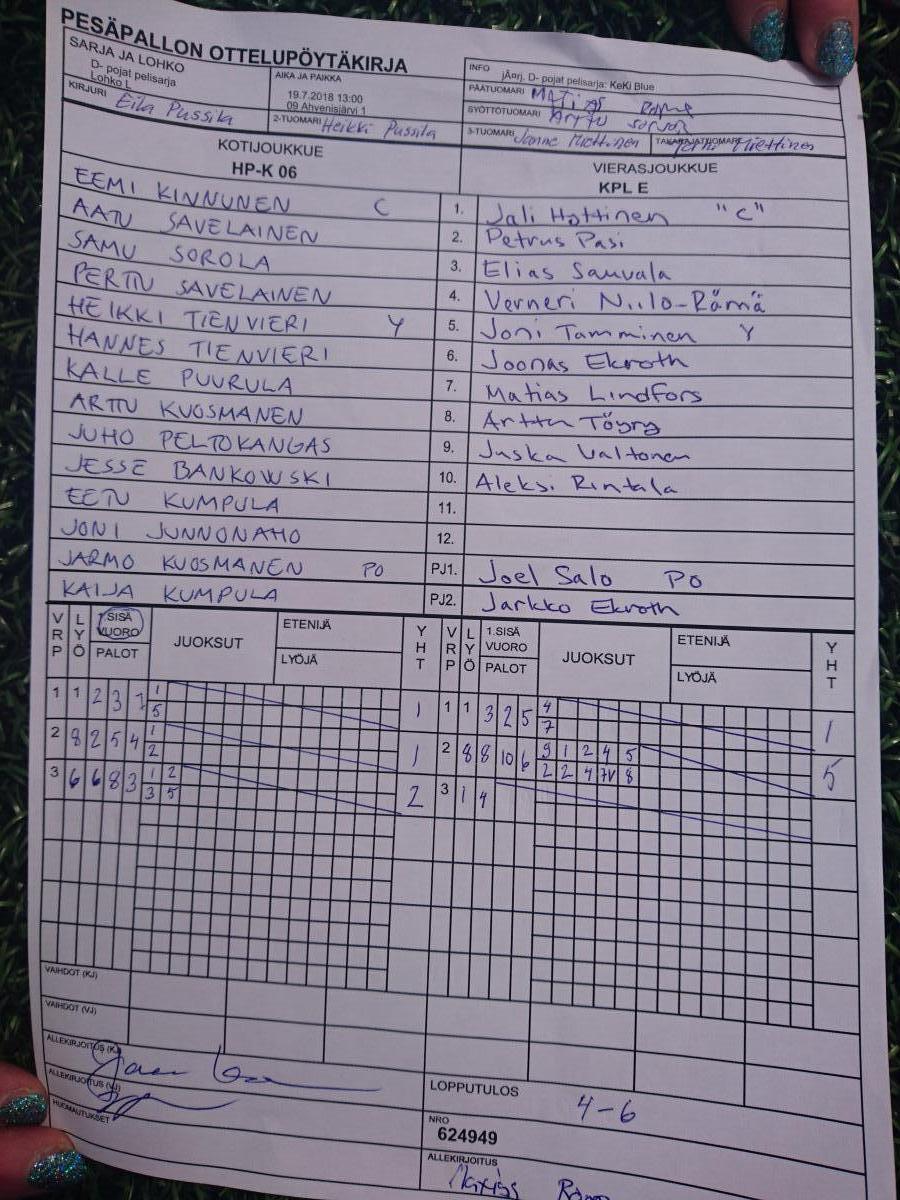 PESÄPALLON OTTELUPÖYTÄKIRJA
SARJA JA LOHKO
D- pojat pelisarja
Lohko L
AIKA JA PAIKKA
19.7.2018 13:00
09 Ahvenisjärvi 1
INFO
jÄ¤rj. D- pojat pelisarja: KeKi Blue
KIRJURI Eila Pussila
2-TUOMARI Heikki Pussila
PÄÄTUOMARI MATIAS
SYÖTTÖTUOMARI ARTTU
3-TUOMARI Janne Miettinen
TAKARAJATUOMARI Miettinen
KOTIJOUKKUE
HP-K 06
VIERASJOUKKUE
KPL E
EEMI KINNUNEN C 1. Jali Hottinen "C"
AATU SAVELAINEN 2. Petrus Pasi
SAMU SOROLA 3. Elias Sauvala
PERTTU SAVELAINEN 4. Verneri Niilo-Rämä
HEIKKI TIENVIERI Y 5. Joni Tamminen Y
HANNES TIENVIERI 6. Joonas Ekroth
KALLE PUURULA 7. Matias Lindfors
ARTTU KUOSMANEN 8. Arttu Töyry
JUHO PELTOKANGAS 9. Juska Valtonen
JESSE BANKOWSKI 10. Aleksi Rintala
EETU KUMPULA 11.
JONI JUNNONAHO 12.
JARMO KUOSMANEN PO PJ1. Joel Salo PO
KAIJA KUMPULA PJ2. Jarkko Ekroth
VRP LYÖ 1.SISÄ VUORO PALOT JUOKSUT ETENIJÄ LYÖJÄ YHT VRP LYÖ 1.SISÄ VUORO PALOT JUOKSUT ETENIJÄ LYÖJÄ YHT
1 1 2 3 7 1 1 1 1 3 2 5 4 1
5 7
2 8 2 5 4 1 1 2 8 8 10 6 9 1 2 4 5 5
2 2 2 4 7V 8
3 6 6 8 3 1 2 2 3 1 4
3 5
VAIHDOT (KJ)
VAIHDOT (VJ)
ALLEKIRJOITUS (KJ)
ALLEKIRJOITUS (VJ)
HUOMAUTUKSET
LOPPUTULOS 4-6
NRO
624949
ALLEKIRJOITUS
Matias